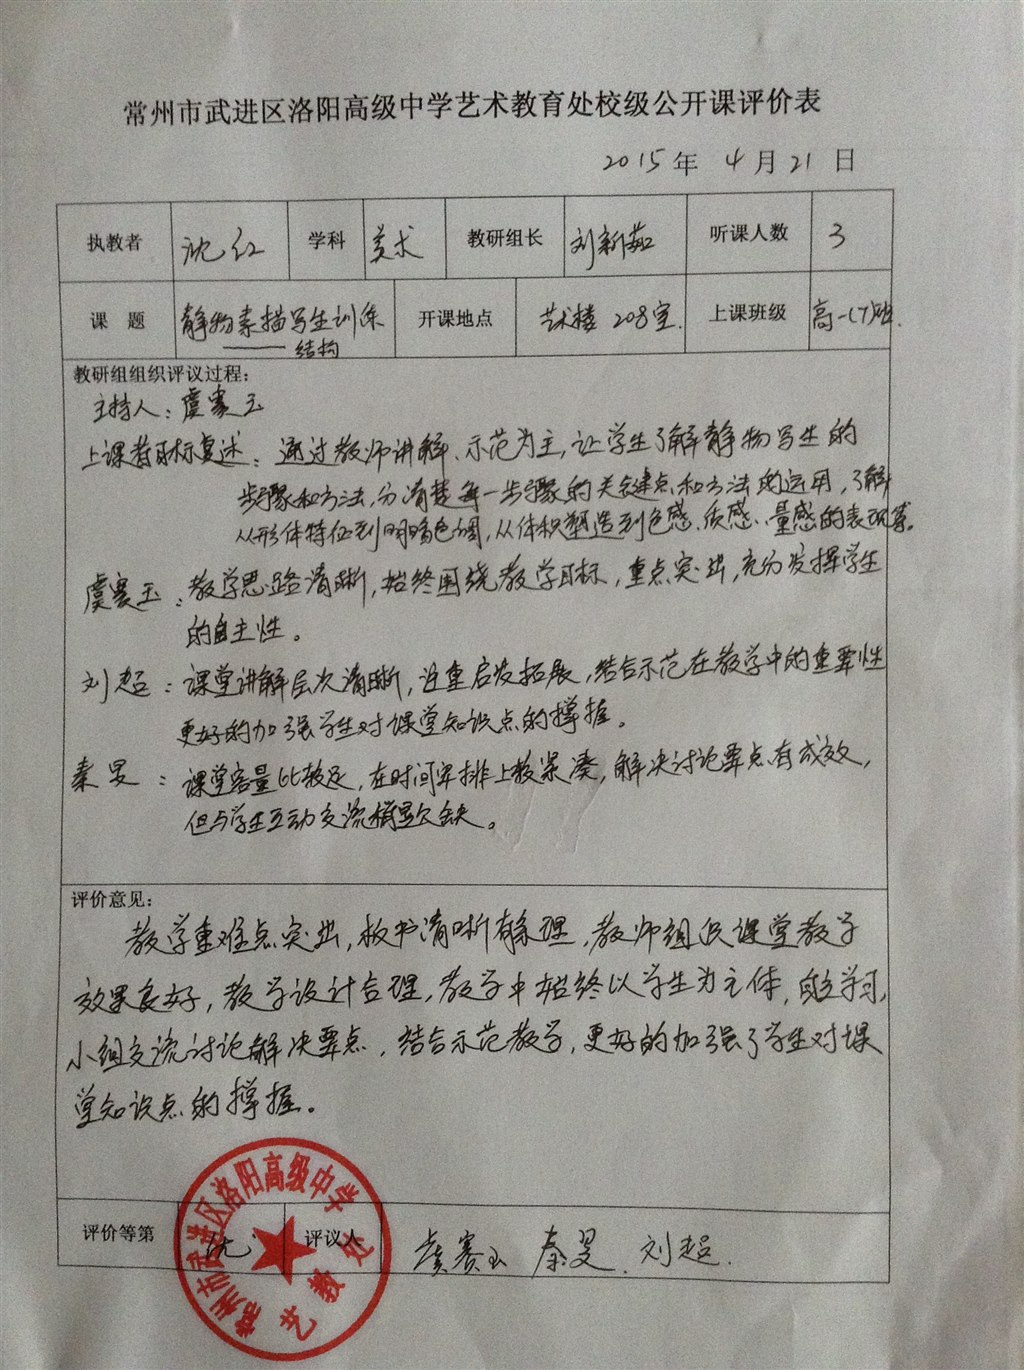 常州市武进区洛阳高级中学艺术教育处校级公开课评价表
2015年 4月21日
执教者 沈红 学科 美术 教研组长 刘新茹 听课人数 3
课 题 静物素描写生训练 开课地点 艺术楼 208室. 上课班级 高一(7)班.
——结构
教研组组织评议过程:
主持人:虞赛玉
上课者目标复述:通过教师讲解、示范为主,让学生了解静物写生的
步骤和方法,分清楚每一步骤的关键点和方法的运用,了解
从形体特征到明暗色调,从体积塑造到色感、质感、量感的表现等。
虞赛玉:教学思路清晰,始终围绕教学目标,重点突出,充分发挥学生
的自主性。
刘超:课堂讲解层次清晰,注重启发拓展,结合示范在教学中的重要性
更好的加强学生对课堂知识点的撑握。
秦旻:课堂容量比较足,在时间安排上较紧凑,解决讨论要点有成效,
但与学生互动交流稍显欠缺。
评价意见:
教学重难点突出,板书清晰有条理,教师组织课堂教学
效果良好,教学设计合理,教学中始终以学生为主体,自主学习,
小组交流讨论解决要点,结合示范教学,更好的加强了学生对课
堂知识点的撑握。
评价等第 优 评议人 虞赛玉 秦旻 刘超.
常州市武进区洛阳高级中学
艺教处